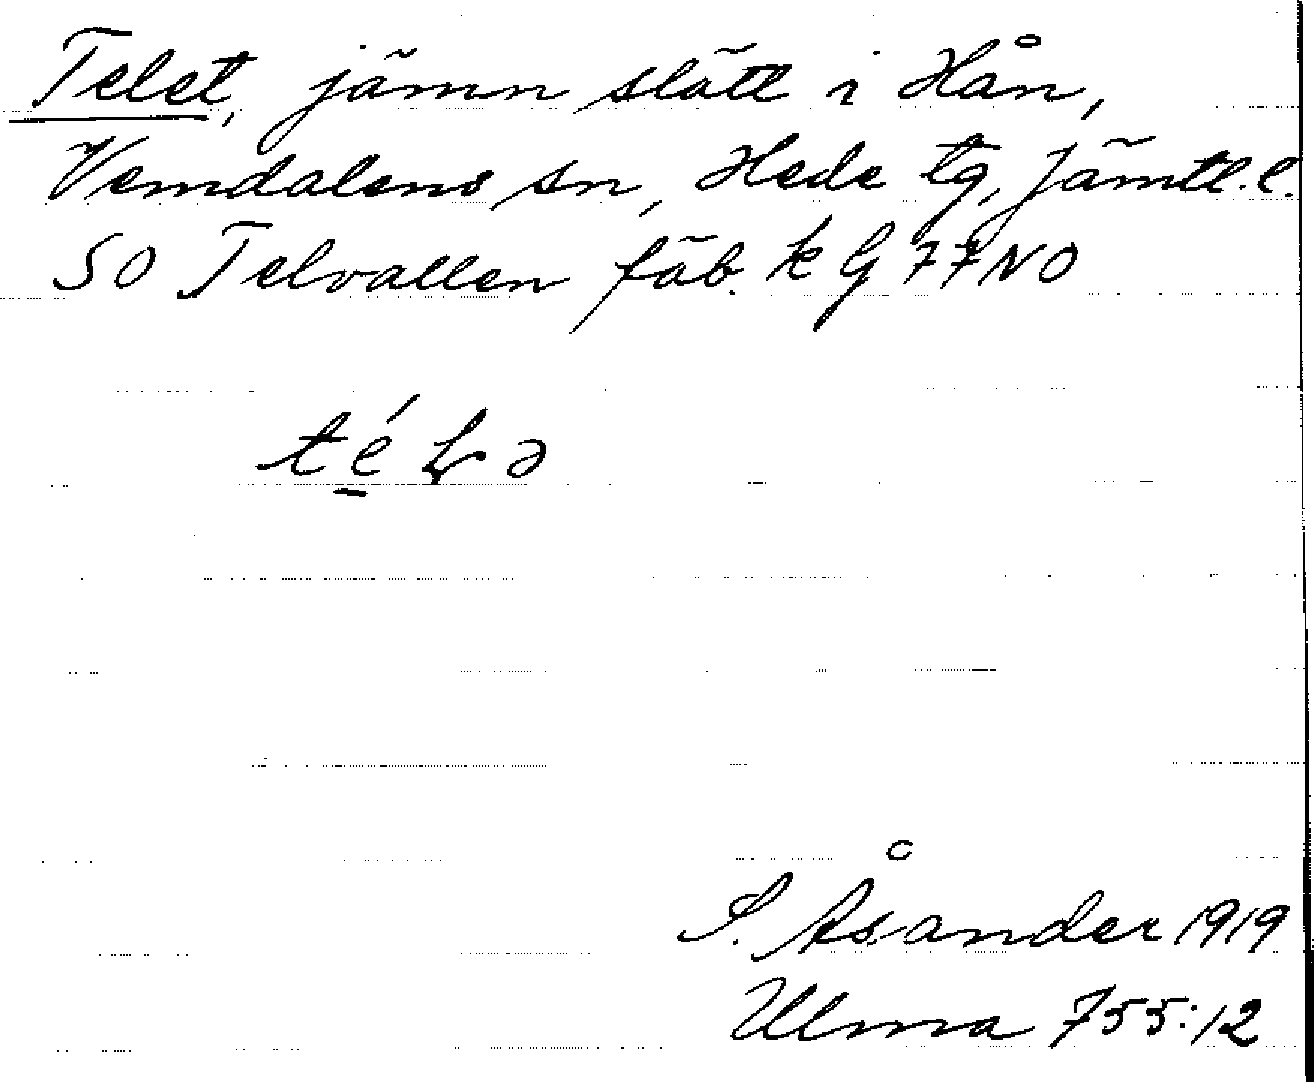 Telet, jämn slätt i Hån,
Vemdalens sn, Hede tg, Jämtl. l.
SO Telvallen fäb. k G 77 NO
S. Åsander 1919
Ulma 755:12